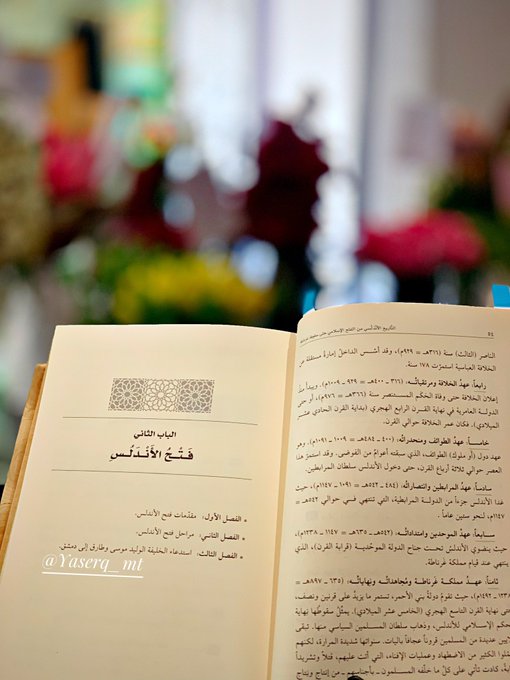 التاريخ الأندلسي من الفتح الإسلامي حتى سقوط غرناطة
الناصر (الثالث) سنة (٣١٦هـ = ٩٢٩م)، وقد أسس الداخل إمارة مستقلة عن
الخلافة العباسية استمرّت ١٧٨ سنة.
رابعاً: عهدُ الخلافة ومرتقياتُه: (٣١٦ - ٤٠٠هـ = ٩٢٩ - ١٠٠٩م). ويبدأ منذُ
إعلان الخلافة حتى وفاة الحَكم المستنصر سنة (٣٦٦هـ = ٩٧٦م)، أو حتى
الدولة العامرية في نهاية القرن الرابع الهجري (بداية القرن الحادي عشر
الميلادي). فكان عصر الخلافة حوالي القرن.
خامساً: عهدُ الطوائف ومنحدراتُه: (٤٠٠ - ٤٨٤هـ = ١٠٠٩ - ١٠٩١م). وهو
عهد دول (أو ملوك) الطوائف، الذي سبقته أعوامٌ من الفوضى. وقد استمرَّ هذا
العصر حوالي ثلاثة أرباع القرن، حتى دخول الأندلس سلطان المرابطين.
سادساً: عهدُ المرابطين وانتصاراتُه: (٤٨٤ - ٥٤٢هـ = ١٠٩١ - ١١٤٧م)، حيث
غدا الأندلس جزءاً من الدولة المرابطية، التي تنتهي في حوالي ٥٤٢هـ =
١١٤٧م، لنحو ستين عاماً.
سابعاً: عهدُ الموحدين وامتداداتُه: (٥٤٢ - ٦٣٥هـ = ١١٤٧ - ١٢٣٨م)،
حيث ينضوي الأندلس تحت جناح الدولة الموحّدية (قرابة القرن)، الذي
ينتهي عند قيام مملكة غرناطة.
ثامناً: عهدُ مملكة غرناطة ومُجاهداتُه ونهاياتُه: (٦٣٥ - ٨٩٧هـ =
١٢٣٨ - ١٤٩٢م)، حيث تقومُ دولةُ بني الأحمر، تستمر ما يزيدُ على قرنين ونصف،
حتى نهاية القرن التاسع الهجري (الخامس عشر الميلادي). يمثّل سقوطُها نهاية
الحكم الإسلامي للأندلس، وذهاب سلطان المسلمين السياسي منها. تبقى
عديدة من المسلمين قروناً عجافاً باليات. سنواتها شديدة المرارة، لكنهم
الكثير من الاضطهاد وعمليات الإفناء، التي أتت عليهم، قتلاً وتشريداً
كادت تأتي على كل ما خلّفه المسلمون - بأجناسهم - من إنتاج
الباب الثاني
فَتْحُ الأَنْدَلُسِ
الفصل الأول: مقدّمات فتح الأندلس.
الفصل الثاني: مراحل فتح الأندلس.
الفصل الثالث: استدعاء الخليفة الوليد موسى وطارق إلى دمشق.
@Yaserq_mt